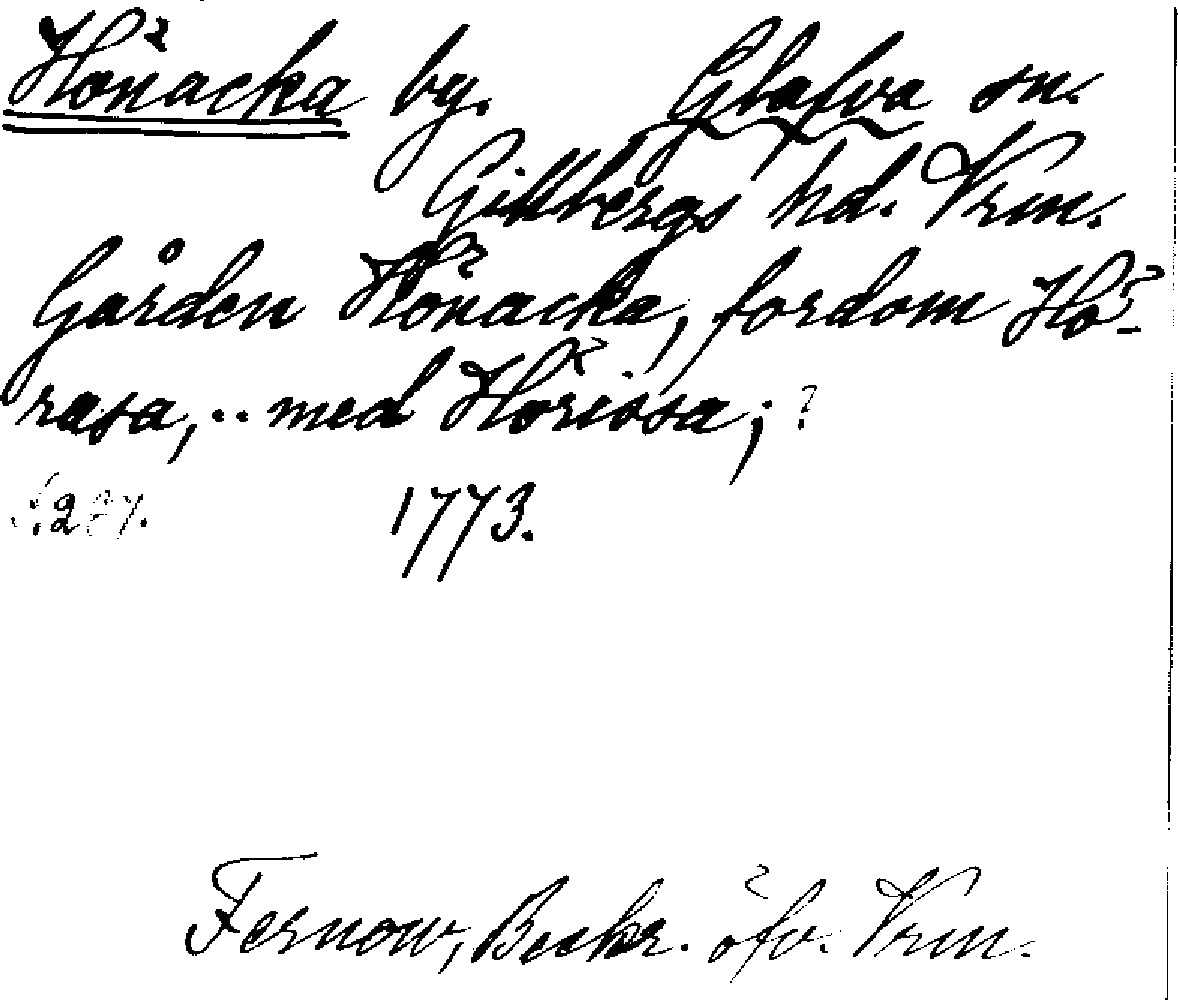 Hönacka by. Glafva sn.
Gillbergs hd. Vrm.
Gården Hönacka, fordom Hö-
rasa, .. med Höriosa; ?
S. 287.
1773.
Fernow, Beskr. öfv. Vrm.